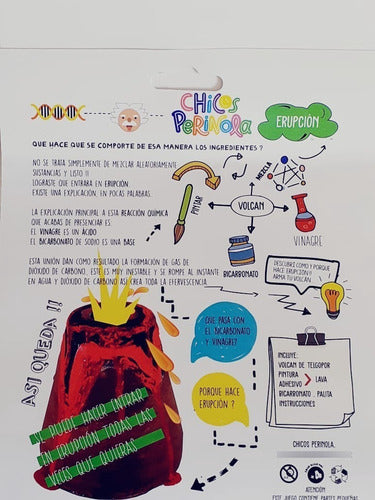 CHICOS
PERINOLA
ERUPCIÓN
QUE HACE QUE SE COMPORTE DE ESA MANERA LOS INGREDIENTES ?
NO SE TRATA SIMPLEMENTE DE MEZCLAR ALEATORIAMENTE
SUSTANCIAS Y LISTO !!
LOGRASTE QUE ENTRARA EN ERUPCIÓN.
EXISTE UNA EXPLICACIÓN, EN POCAS PALABRAS.
LA EXPLICACIÓN PRINCIPAL A ESTA REACCIÓN QUÍMICA
QUE ACABAS DE PRESENCIAR ES:
EL VINAGRE ES UN ÁCIDO
EL BICARBONATO DE SODIO ES UNA BASE
ESTA UNIÓN DAN COMO RESULTADO LA FORMACIÓN DE GAS DE
DIÓXIDO DE CARBONO. ESTE ES MUY INESTABLE Y SE ROMPE AL INSTANTE
EN AGUA Y DIÓXIDO DE CARBONO ASÍ CREA TODA LA EFERVESCENCIA.
PINTAR
MEZCLA
VOLCAN
VINAGRE
BICARBONATO
DESCUBRÍ COMO Y PORQUE
HACE ERUPCION !!
ARMA TU VOLCAN
ASI QUEDA !!
QUE PASA CON
EL BICARBONATO
Y VINAGRE?
PORQUE HACE
ERUPCIÓN ?
Y PUEDE HACER ENTRAR
EN ERUPCIÓN TODAS LAS
VECES QUE QUIERAS
INCLUYE:
VOLCAN DE TELGOPOR
PINTURA
ADHESIVO > LAVA
BICARBONATO . PALITA
INSTRUCCIONES
CHICOS PERINOLA.
ATENCIÓN